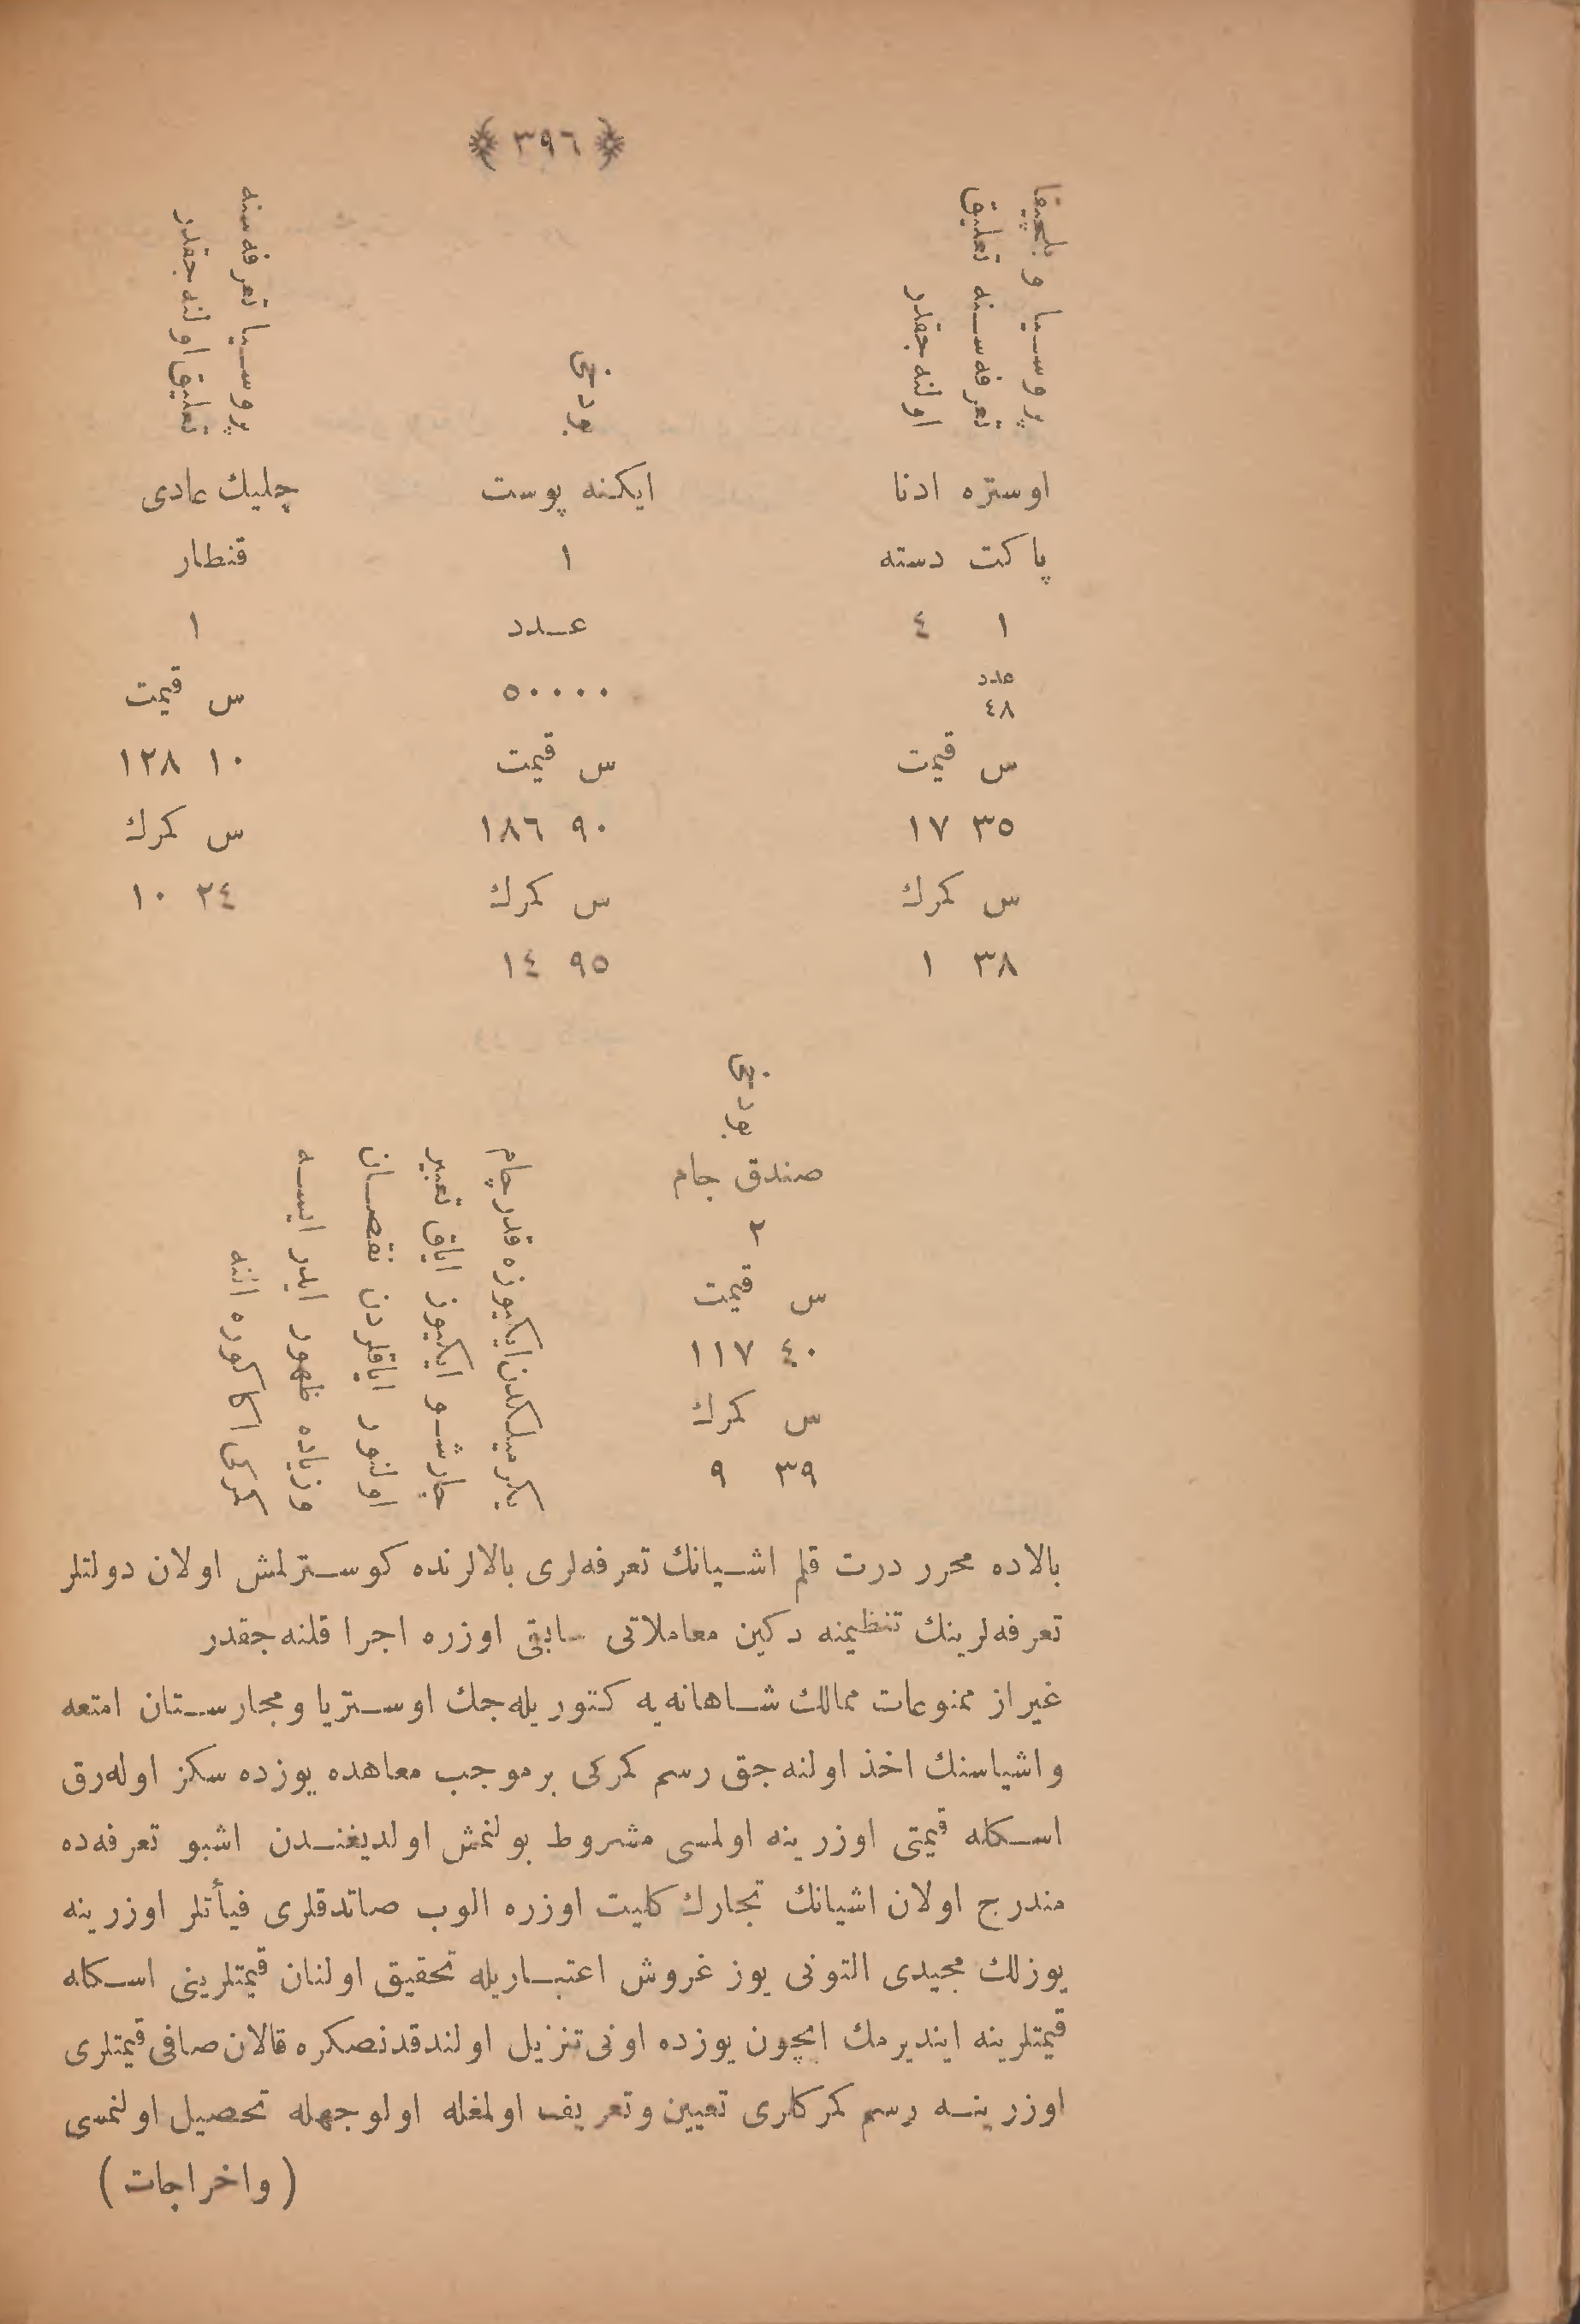 ٣٩٦
پروسيا و بلچيقا
تعرفه‌سنه تعليق
اولنه‌جقدر
اوستره ادنا
پاكت دسته
١ ٤
عدد
٤٨
س قيمت
٣٥ ١٧
س كمرك
٣٨ ١
بو دخى
ايكنه پوست
١
عدد
٥٠٠٠٠
س قيمت
٩٠ ١٨٦
س كمرك
٩٥ ١٤
پروسيا تعرفه‌سنه
تعليق اولنه‌جقدر
چليك عادى
قنطار
١
س قيمت
١٠ ١٢٨
س كمرك
٢٤ ١٠
بو دخى
صندق جام
٢
س قيمت
٤٠ ١١٧
س كمرك
٣٩ ٩
يكرميلكدن ايكيوزه قدر چام
چارشو ايكيوز اياق تعبير
اولنور اياقلردن نقصان
وزياده ظهور ايدر ايسه
كمركى اكا كوره النه
بالاده محرر درت قلم اشيانك تعرفه‌لرى بالالرنده كوسترلمش اولان دولتلر
تعرفه‌لرينك تنظيمنه دكين معاملاتى سابقى اوزره اجرا قلنه‌جقدر
غير از ممنوعات ممالك شاهانه‌يه كتوريله‌جك اوستريا ومجارستان امتعه
واشياسنك اخذ اولنه‌جق رسم كمركى بر موجب معاهده يوزده سكز اوله‌رق
اسكله قيمتى اوزرينه اولمسى مشروط بولنمش اولديغندن اشبو تعرفه‌ده
مندرج اولان اشيانك تجارك كليت اوزره الوب صاتدقلرى فيأتلر اوزرينه
يوزلك مجيدى التونى يوز غروش اعتباريله تحقيق اولنان قيمتلرينى اسكله
قيمتلرينه اينديرمك ايچون يوزده اونى تنزيل اولندقدنصكره قالان صافى قيمتلرى
اوزرينه رسم كمركلرى تعيين وتعريف اولمغله اولوجهله تحصيل اولنمسى
( واخراجات )